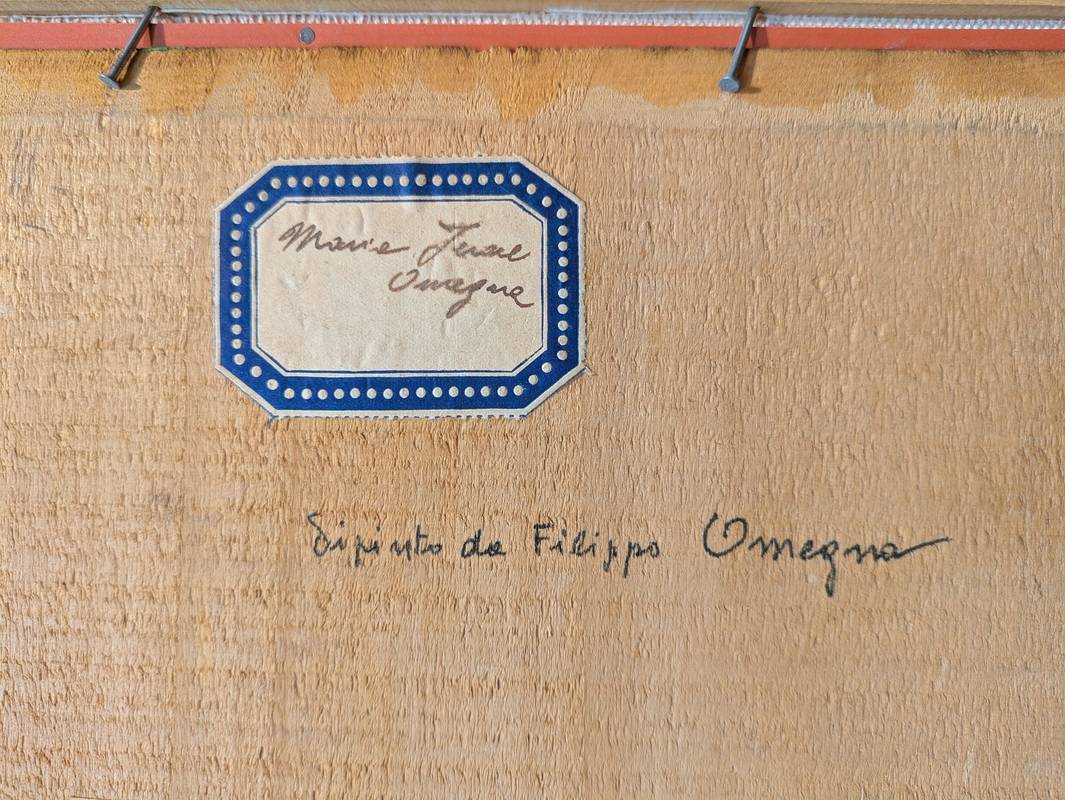 Marie
Omegna
Dipinto da Filippo Omegna